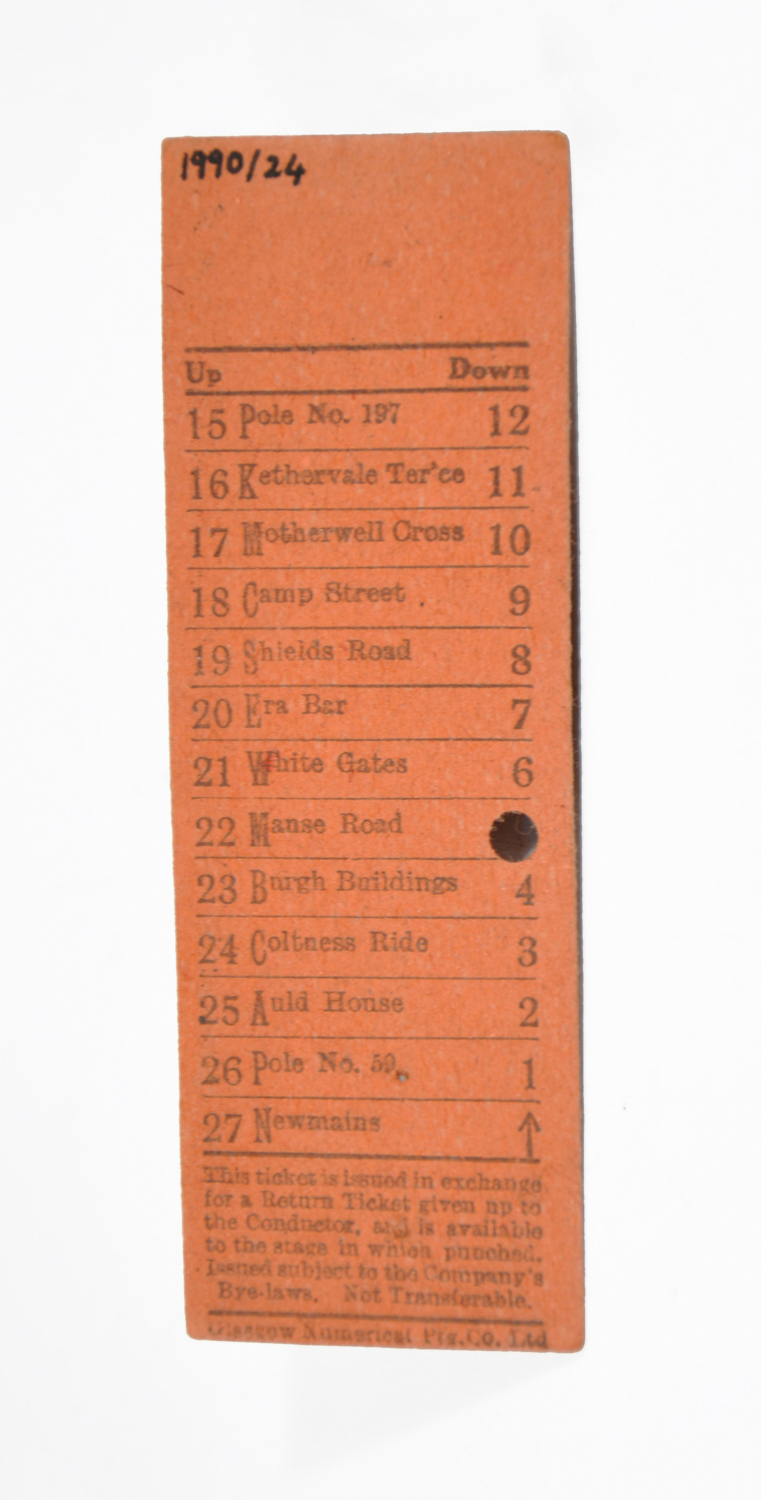 1990/24
Up Down
15 Pole No. 197 12
16 Kethervale Ter'ce 11
17 Motherwell Cross 10
18 Camp Street 9
19 Shields Road 8
20 Era Bar 7
21 White Gates 6
22 Manse Road
23 Burgh Buildings 4
24 Coltness Ride 3
25 Auld House 2
26 Pole No. 59 1
27 Newmains ↑
This ticket is issued in exchange
for a Return Ticket given up to
the Conductor, and is available
to the stage in which punched.
Issued subject to the Company's
Bye-laws. Not Transferable.
Glasgow Numerical Ptg. Co. Ltd